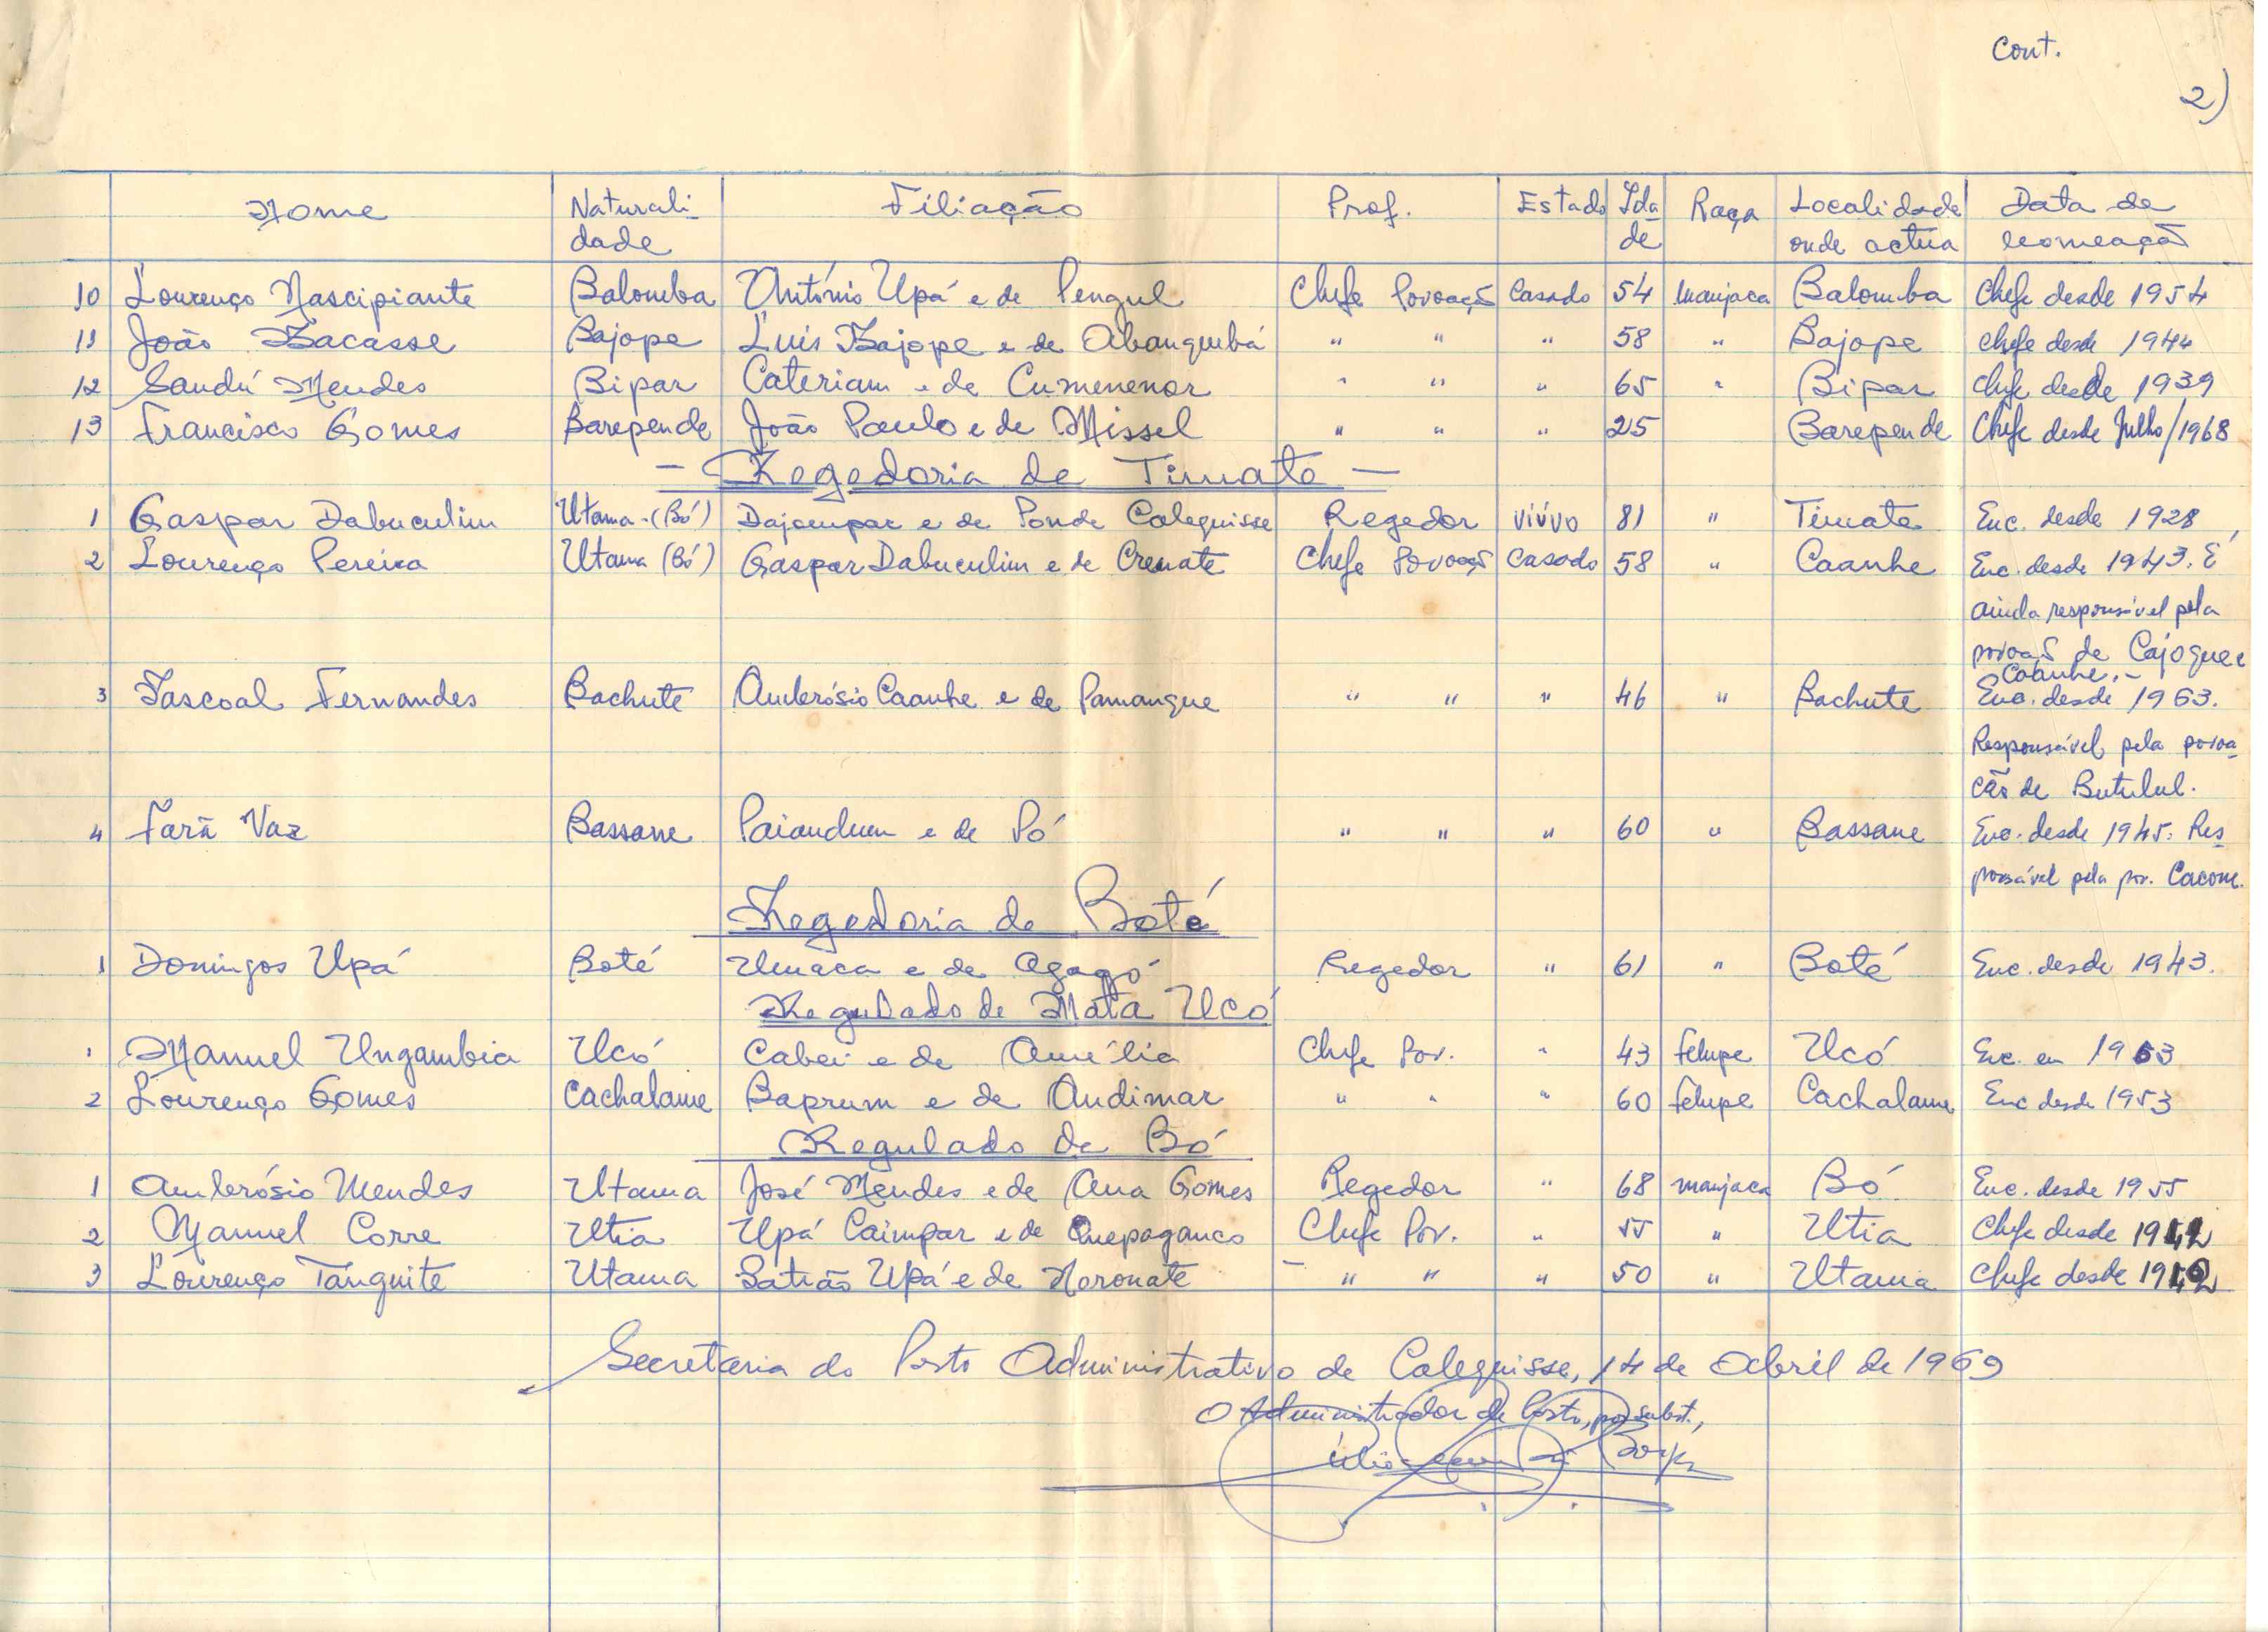 Cont.
2)
Nome Naturali- Filiação Prof. Estado Ida- Raça Localidade Data de
dade de onde actúa nomeação
10 Lourenço Nascipiante Balomba António Upá e de Pengul Chefe Povoação Casado 54 Manjaca Balomba Chefe desde 1954
11 João Bacasse Bajope Luís Bajope e de Abanquebá " " " 58 " Bajope Chefe desde 1944
12 Sandú Mendes Bipar Cateriam e de Cumenenor " " " 65 " Bipar Chefe desde 1939
13 Francisco Gomes Barepende João Paulo e de Missel " " " 25 Barepende Chefe desde Julho/1968
- Regedoria de Timate -
1 Gaspar Dabuculim Utama-(Bó) Dajampar e de Ponde Calequisse Regedor viúvo 81 " Timate Enc. desde 1928
2 Lourenço Pereira Utama (Bó) Gaspar Dabuculim e de Crenate Chefe Povoação Casado 58 " Caanhe Enc. desde 1943. É
ainda responsável pela
povoaç. de Cajogue e
Caanhe.-
3 Pascoal Fernandes Bachute Ambrósio Caanhe e de Pamangue " " " 46 " Bachute Enc. desde 1963.
Responsável pela povoa-
ção de Butulul.
4 Farã Vaz Bassane Paiandum e de Pó " " " 60 " Bassane Enc. desde 1945. Res-
ponsável pela pov. Cacom.
Regedoria de Boté
1 Domingos Upá Boté Umaca e de Agagó Regedor " 61 " Boté Enc. desde 1943.
Regulado de Mata Ucó
1 Manuel Ungambia Ucó Cabei e de Amélia Chefe Pov. " 43 felupe Ucó Enc. em 1963
2 Lourenço Gomes Cachalame Baprum e de Andimar " " " 60 felupe Cachalame Enc desde 1953
Regulado de Bó
1 Ambrósio Mendes Utama José Mendes e de Ana Gomes Regedor " 68 manjaca Bó Enc. desde 1955
2 Manuel Corre Utia Upá Caimpar e de Quepaganco Chefe Pov. " 55 " Utia Chefe desde
3 Lourenço Tanguite Utama Batião Upá e de Noronate " " " 50 " Utama Chefe desde
Secretaria do Posto Administrativo de Calequisse, 14 de Abril de 1969
O Administrador de Posto, por subst.,